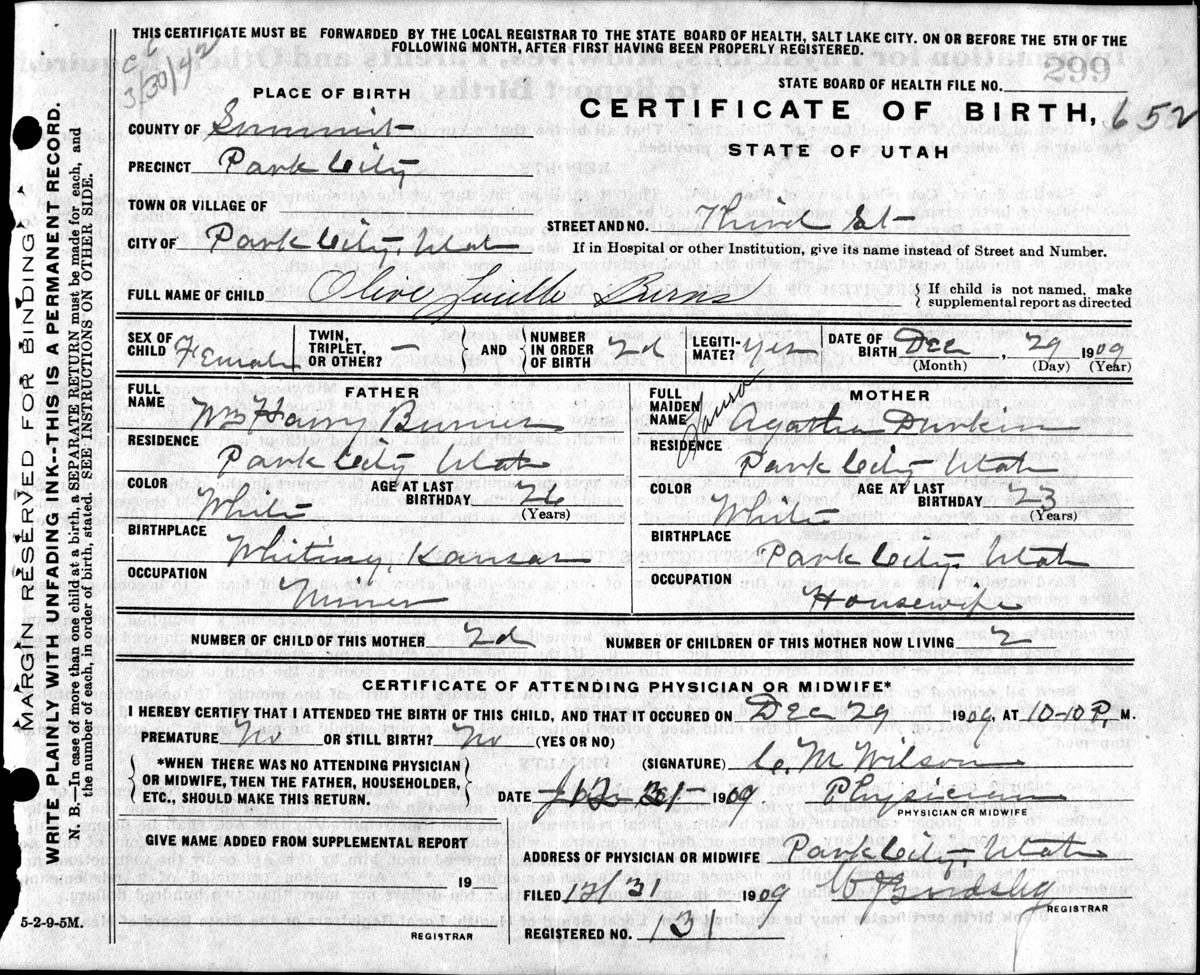 THIS CERTIFICATE MUST BE FORWARDED BY THE LOCAL REGISTRAR TO THE STATE BOARD OF HEALTH, SALT LAKE CITY. ON OR BEFORE THE 5TH OF THE
FOLLOWING MONTH, AFTER FIRST HAVING BEEN PROPERLY REGISTERED.
3/30/42
299
STATE BOARD OF HEALTH FILE NO.
PLACE OF BIRTH
CERTIFICATE OF BIRTH, 652
STATE OF UTAH
COUNTY OF Summit
PRECINCT Park City
TOWN OR VILLAGE OF
STREET AND NO. Third St
CITY OF Park City, Utah
If in Hospital or other Institution, give its name instead of Street and Number.
FULL NAME OF CHILD Olive Lucille Burns
{ If child is not named, make supplemental report as directed
SEX OF CHILD Female TWIN, TRIPLET, OR OTHER? — { AND } NUMBER IN ORDER OF BIRTH 2d LEGITI-MATE? Yes DATE OF BIRTH Dec, 29 1909
(Month) (Day) (Year)
FATHER
FULL NAME Wm Harry Burner
RESIDENCE Park City Utah
COLOR White AGE AT LAST BIRTHDAY 26 (Years)
BIRTHPLACE Whiting, Kansas
OCCUPATION Miner
MOTHER
FULL MAIDEN NAME Agatha Durkin
RESIDENCE Park City Utah
COLOR White AGE AT LAST BIRTHDAY 23 (Years)
BIRTHPLACE Park City, Utah
OCCUPATION Housewife
NUMBER OF CHILD OF THIS MOTHER 2d NUMBER OF CHILDREN OF THIS MOTHER NOW LIVING 2
CERTIFICATE OF ATTENDING PHYSICIAN OR MIDWIFE*
I HEREBY CERTIFY THAT I ATTENDED THE BIRTH OF THIS CHILD, AND THAT IT OCCURED ON Dec 29 1909, AT 10-10 P. M.
PREMATURE No OR STILL BIRTH? No (YES OR NO)
{ *WHEN THERE WAS NO ATTENDING PHYSICIAN
OR MIDWIFE, THEN THE FATHER, HOUSEHOLDER,
ETC., SHOULD MAKE THIS RETURN. }
(SIGNATURE) C. M Wilson
DATE 12-31 1909 Physician
PHYSICIAN OR MIDWIFE
GIVE NAME ADDED FROM SUPPLEMENTAL REPORT
19
REGISTRAR
ADDRESS OF PHYSICIAN OR MIDWIFE Park City, Utah
FILED 12/31 1909
REGISTRAR
REGISTERED NO. 131
5-2-9-5M.
MARGIN RESERVED FOR BINDING
WRITE PLAINLY WITH UNFADING INK--THIS IS A PERMANENT RECORD.
N. B.—In case of more than one child at a birth, a SEPARATE RETURN must be made for each, and
the number of each, in order of birth, stated. (SEE INSTRUCTIONS ON OTHER SIDE.